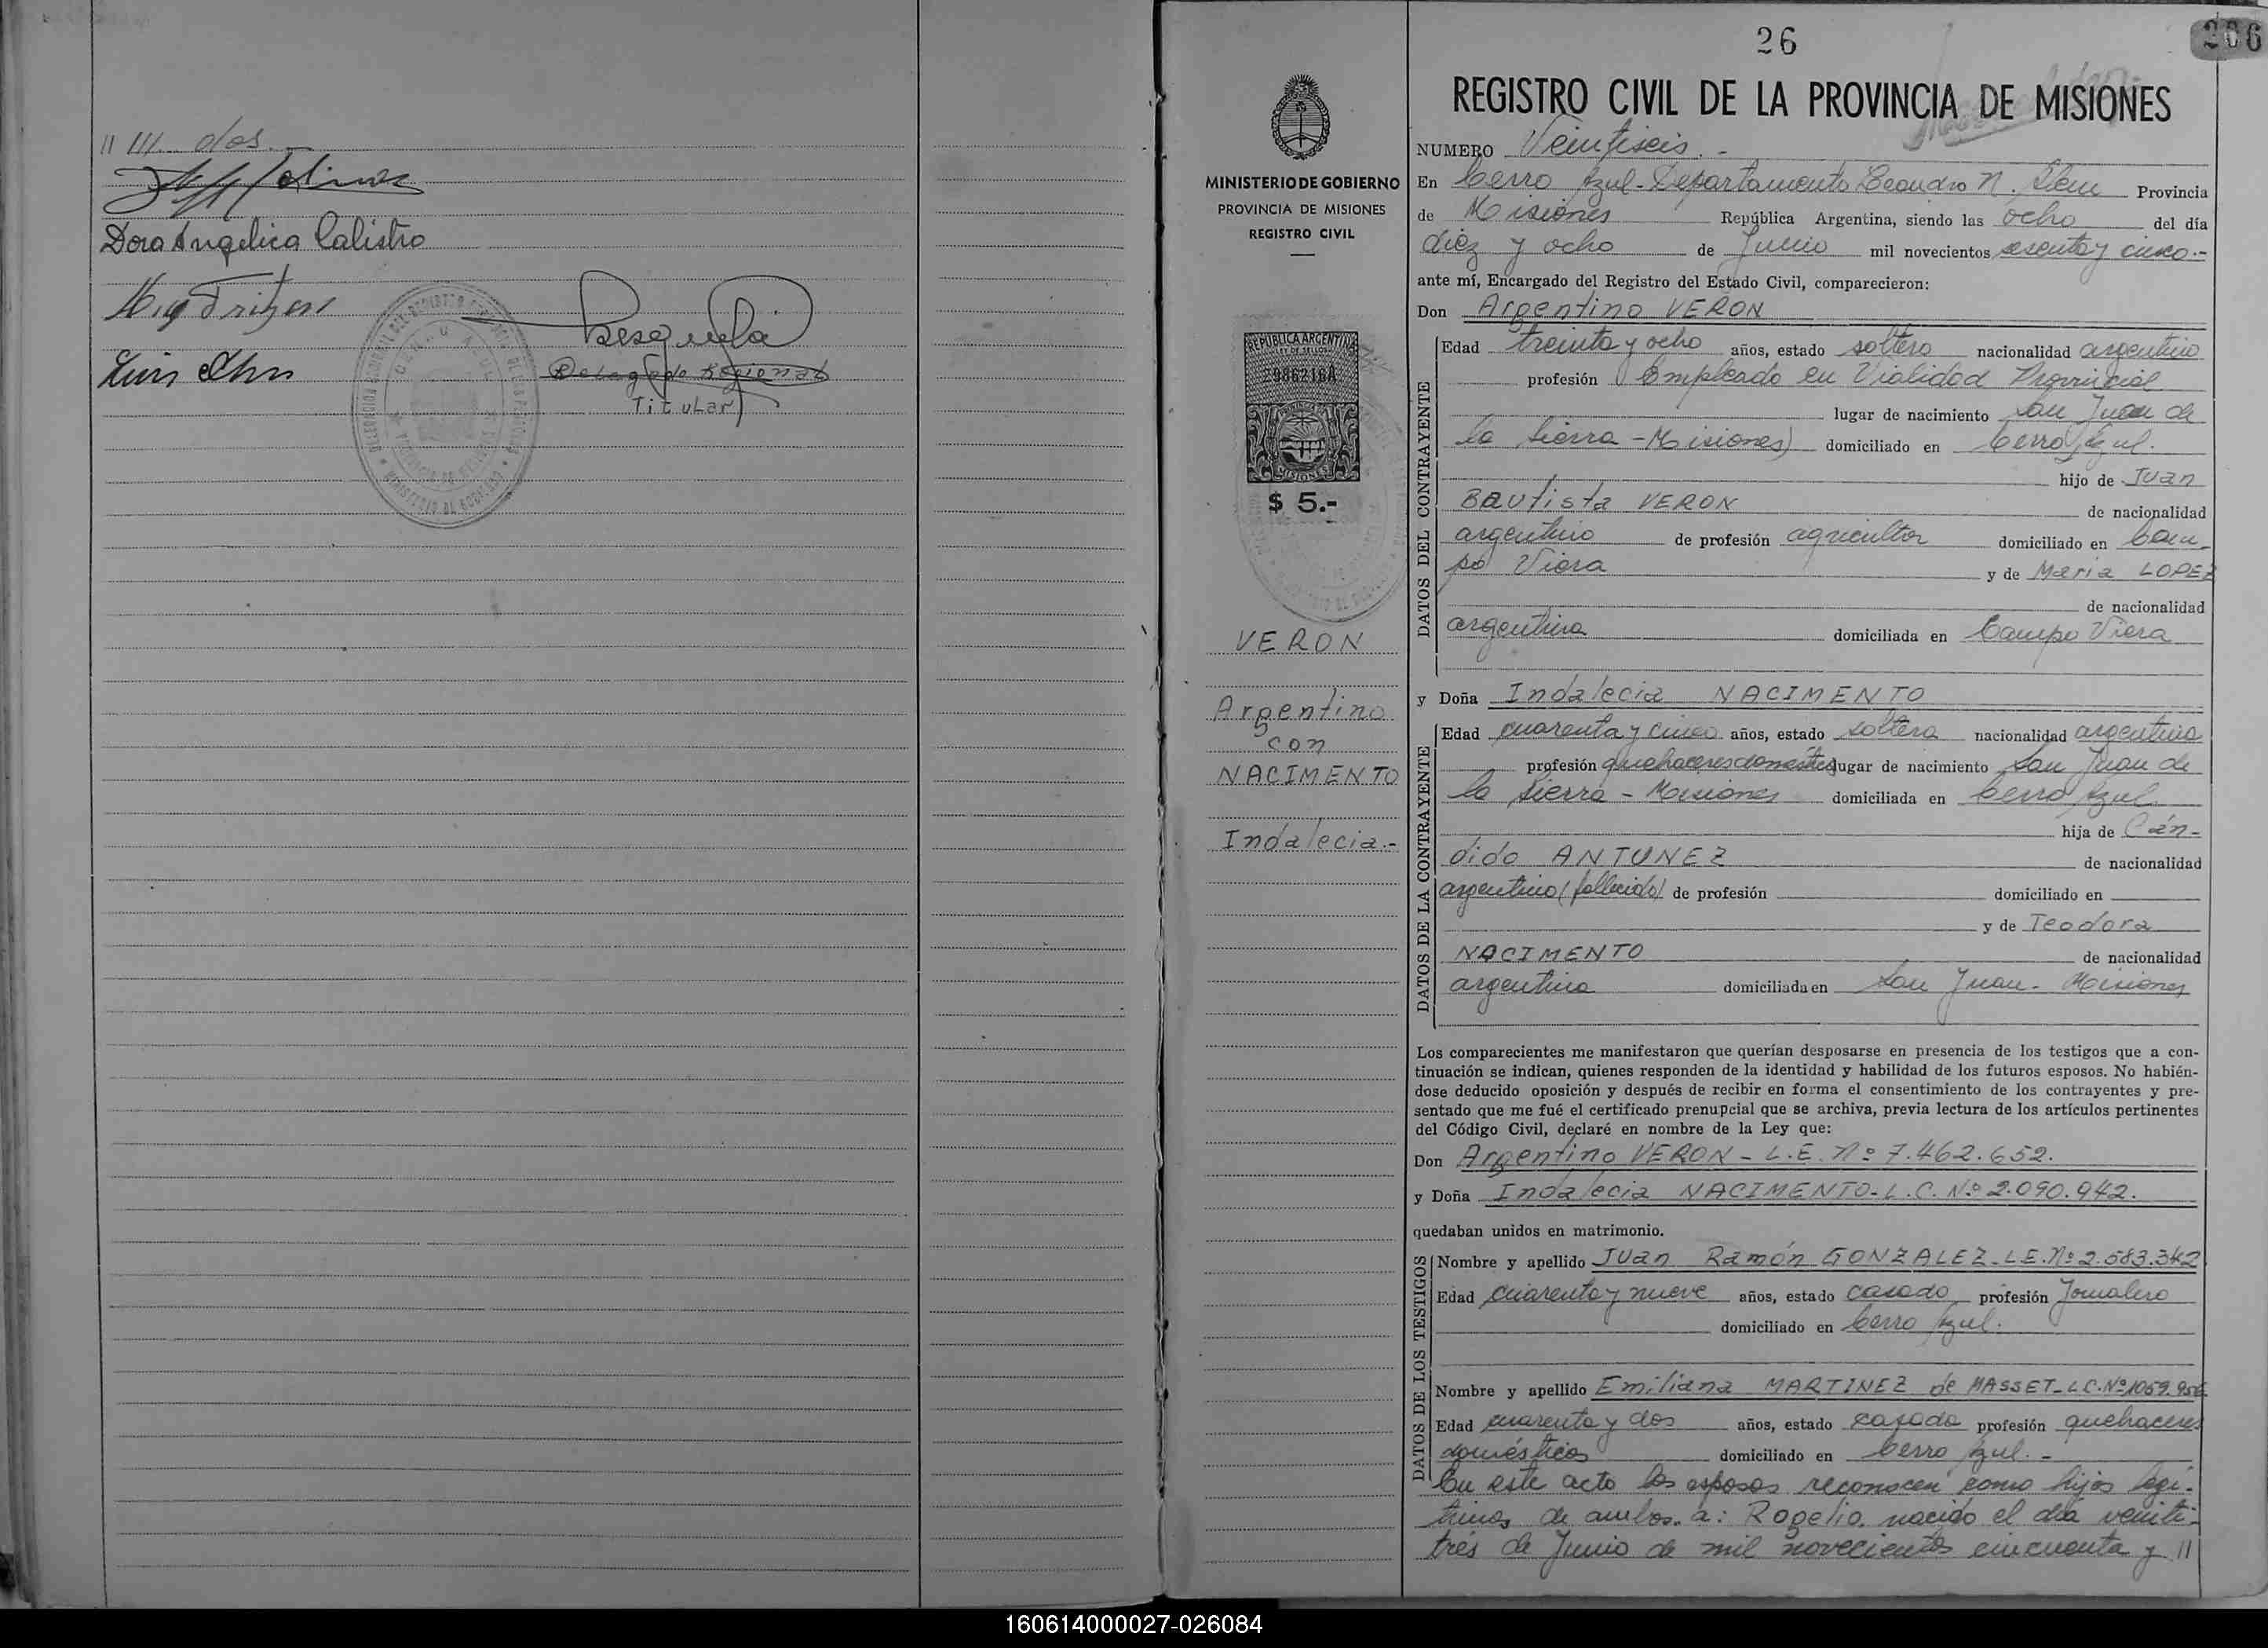 II III... dos.
Dora Angelica Calistro
Luis
Titular
26
206
REGISTRO CIVIL DE LA PROVINCIA DE MISIONES
MINISTERIO DE GOBIERNO
PROVINCIA DE MISIONES
REGISTRO CIVIL
REPUBLICA ARGENTINA
LEY DE SELLOS
298621 6A
MISIONES
$ 5.-
VERON
Argentino
con
NACIMENTO
Indalecia.-
NUMERO Veintiseis.-
En Cerro Azul - Departamento Leandro N. Alem Provincia
de Misiones República Argentina, siendo las ocho del día
diez y ocho de Junio mil novecientos sesenta y cinco.-
ante mí, Encargado del Registro del Estado Civil, comparecieron:
Don Argentino VERON
DATOS DEL CONTRAYENTE
Edad treinta y ocho años, estado soltero nacionalidad argentino
profesión Empleado en Vialidad Provincial
lugar de nacimiento San Juan de
la Sierra - Misiones) domiciliado en Cerro Azul.
hijo de Juan
Bautista VERON de nacionalidad
argentino de profesión agricultor domiciliado en Cam-
po Viera y de Maria LOPEZ
de nacionalidad
argentina domiciliada en Campo Viera
y Doña Indalecia NACIMENTO
DATOS DE LA CONTRAYENTE
Edad cuarenta y cinco años, estado soltera nacionalidad argentina
profesión quehaceres domésticos lugar de nacimiento San Juan de
la Sierra - Misiones domiciliada en Cerro Azul
hija de Cán-
dido ANTUNEZ de nacionalidad
argentino (fallecido) de profesión domiciliado en
y de Teodora
NACIMENTO de nacionalidad
argentina domiciliada en San Juan - Misiones
Los comparecientes me manifestaron que querían desposarse en presencia de los testigos que a con-
tinuación se indican, quienes responden de la identidad y habilidad de los futuros esposos. No habién-
dose deducido oposición y después de recibir en forma el consentimiento de los contrayentes y pre-
sentado que me fué el certificado prenupcial que se archiva, previa lectura de los artículos pertinentes
del Código Civil, declaré en nombre de la Ley que:
Don Argentino VERON - L.E. Nº 7.462.652.
y Doña Indalecia NACIMENTO - L.C. Nº 2.090.942.
quedaban unidos en matrimonio.
DATOS DE LOS TESTIGOS
Nombre y apellido Juan Ramón GONZALEZ - L.E. Nº 2.583.342
Edad cuarenta y nueve años, estado casado profesión Jornalero
domiciliado en Cerro Azul.
Nombre y apellido Emiliana MARTINEZ de MASSET - L.C. Nº 1059.956
Edad cuarenta y dos años, estado casada profesión quehaceres
domésticos domiciliado en Cerro Azul.-
En este acto los esposos reconocen como hijos legí-
timos de ambos a: Rogelio, nacido el día veinti-
trés de Junio de mil novecientos cincuenta y II
160614000027-026084